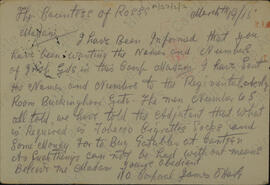 The Countess of Rosse
March 19/15
Madam
I have Been Informed that you
have been wanting the Names and Number
of Irish Gds in this Camp Madam I have Sent
the Names and Numbers to the Regimental orderly
Room Buckingham Gate. The men Number
all told, we have told the Adjutant that what
is Required is Tobacco Cigarettes Socks and
Some Money For to Buy Eatables at Canteen
As such things can not be had without means
Believe me Madam yours Obedient
James